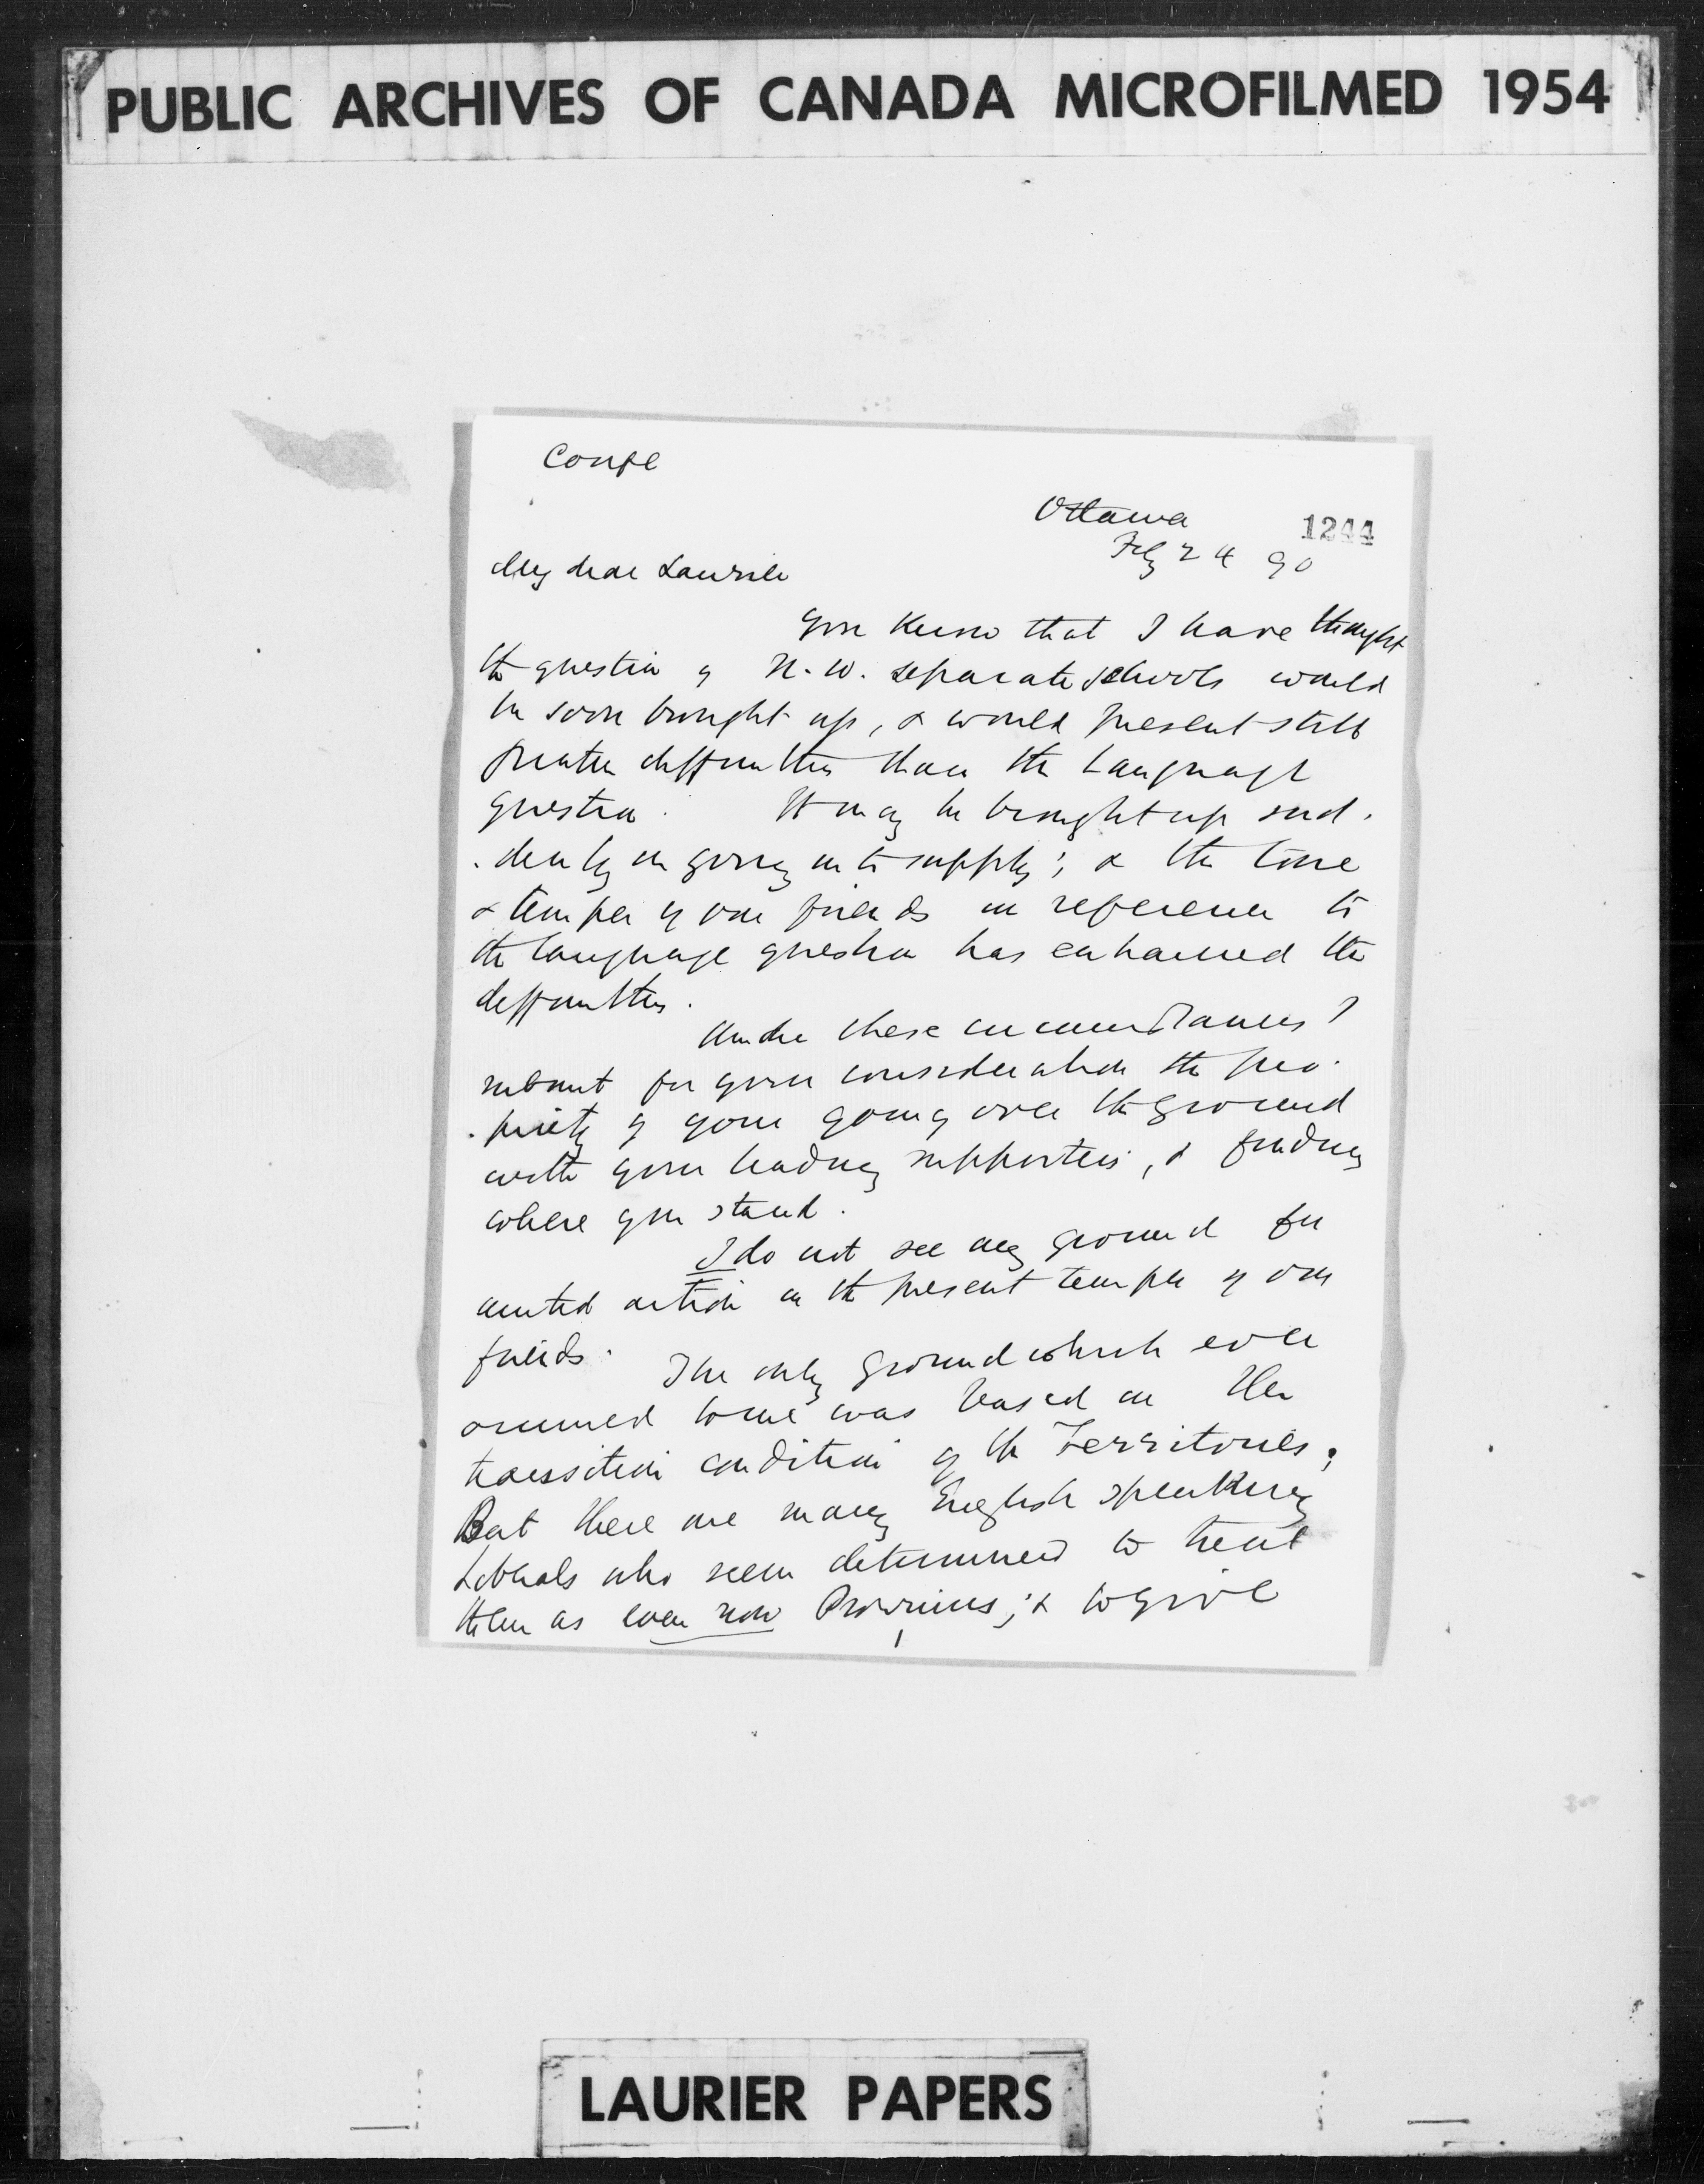 PUBLIC ARCHIVES OF CANADA MICROFILMED 1954
Confe
Ottawa
1244
Feby 24 90
My dear Laurier
You know that I have thought
the question of N.W. separate schools would
be soon brought up, & would present still
greater difficulties than the Language
question. It may be brought up sud-
-denly on going into supply; & the tone
& temper of our friends in reference to
the language question has enhanced the
difficulties.
Under these circumstances I
submit for your consideration the pro-
-priety of your going over the ground
with your leading supporters, & finding
where you stand.
I do not see any ground for
united action in the present temper of our
friends. The only ground which ever
occurred to me was based on the
transition condition of the Territories;
But there are many English speaking
Liberals who seem determined to treat
them as even now Provinces; & to give
LAURIER PAPERS